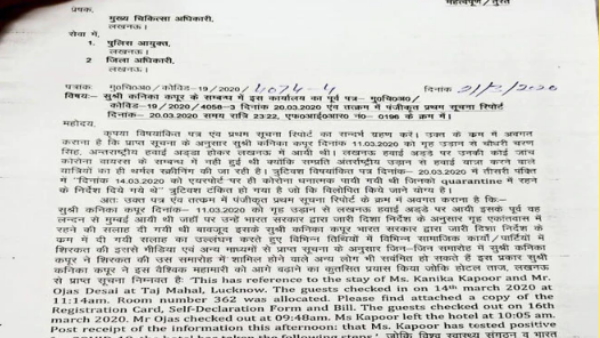 महत्वपूर्ण/तुरंत
प्रेषक,
मुख्य चिकित्सा अधिकारी,
लखनऊ।
सेवा में,
1. पुलिस आयुक्त,
लखनऊ।
2 जिला अधिकारी,
लखनऊ।
पत्रांकः मु०चि०अ०/कोविड-19/2020/4074-4 दिनांक 21/3/2020
विषयः- सुश्री कनिका कपूर के सम्बन्ध में इस कार्यालय का पूर्व पत्र- मु०चि०अ०/
कोविड-19/2020/4058-3 दिनांक 20.03.2020 एवं तत्क्रम में पंजीकृत प्रथम सूचना रिपोर्ट
दिनांक- 20.03.2020 समय रात्रि 23:22, एफ०आई०आर० नं०- 0196 के क्रम में।
महोदय,
कृपया विषयांकित पत्र एवं प्रथम सूचना रिपोर्ट का सन्दर्भ ग्रहण करें। उक्त के क्रम में अवगत
कराना है कि प्राप्त सूचना के अनुसार सुश्री कनिका कपूर दिनांक 11.03.2020 को गृह उड़ान से चौधरी चरण
सिंह, अन्तर्राष्ट्रीय हवाई अड्डा लखनऊ में आयी थी। लखनऊ हवाई अड्डे पर उनकी कोई जांच
कोरोना वायरस के सम्बन्ध में नही हुई थी क्योंकि सम्प्रति अंतर्राष्ट्रीय उड़ान से हवाई यात्रा करने वाले
यात्रियों का ही थर्मल स्क्रीनिंग की जा रही है। त्रुटिवश विषयांकित पत्र दिनांक- 20.03.2020 में तीसरी पंक्ति
में "दिनांक 14.03.2020 को एयरपोर्ट पर ही कोरोना धनात्मक पायी गयी थी जिनको quarantine में रहने
के निर्देश दिये गये थे" त्रुटिवश टंकित हो गया है जो कि विलोपित किये जाने योग्य है।
अतः उक्त पत्र एवं तत्क्रम में पंजीकृत प्रथम सूचना रिपोर्ट के क्रम में अवगत कराना है कि:-
सुश्री कनिका कपूर दिनांक- 11.03.2020 को गृह उड़ान से लखनऊ हवाई अड्डे पर आयी इसके पूर्व वह
लन्दन से मुम्बई आयी थीं जहाँ पर उन्हें भारत सरकार द्वारा जारी दिशा निर्देश के अनुसार गृह एकांतवास में
रहने की सलाह दी गयी थी बावजूद इसके सुश्री कनिका कपूर भारत सरकार द्वारा जारी दिशा निर्देश के
क्रम में दी गयी सलाह का उल्लंघन करते हुए विभिन्न तिथियों में विभिन्न सामाजिक कार्यों/पार्टियों में
शिरकत की इससे मीडिया एवं अन्य माध्यमों से प्राप्त सूचना के अनुसार जिन-जिन समारोह में सुश्री कनिका
कपूर ने शिरकत की उस समारोह में शामिल होने वाले अन्य लोग भी संक्रमित हो सकते हैं इस प्रकार सुश्री
कनिका कपूर ने इस वैश्विक महामारी को आगे बढ़ाने का कुत्सित प्रयास किया जोकि होटल ताज, लखनऊ
से प्राप्त सूचना निम्नवत है: "This has reference to the stay of Ms. Kanika Kapoor and Mr.
Ojas Desai at Taj Mahal, Lucknow. The guests checked in on 14th march 2020 at
11:14am. Room number 362 was allocated. Please find attached a copy of the
Registration Card, Self-Declaration Form and Bill. The guests checked out on 16th
march 2020. Mr Ojas checked out at 09:48am. Ms Kapoor left the hotel at 10:05 am.
Post receipt of the information this afternoon: that Ms. Kapoor has tested positive
the hotel has taken the following steps: जोकि विश्व स्वास्थ्य संगठन व भारत